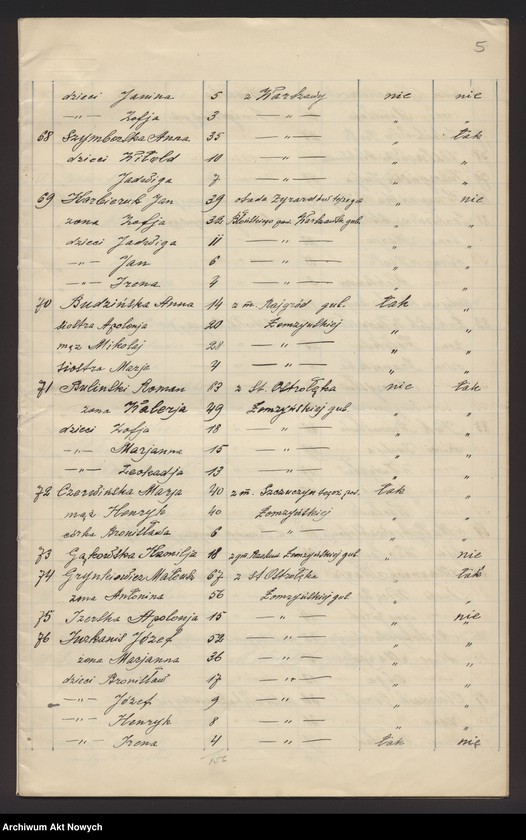 5
dzieci Janina 5 z Warszawy nie nie
—"— Zofja 3 —"— " "
68 Szymborska Anna 35 —"— " tak
dzieci Witold 10 —"— " "
Jadwiga 7 —"— " "
69 Harbieruk Jan 39 osada Żyrardów " nie
żona Zofja 32 Błońskiego pow. Warszawsk gub. " "
dzieci Jadwiga 11 —"— " "
—"— Jan 6 —"— " "
—"— Irena 4 —"— " "
70 Budzińska Anna 14 z m. Rajgród gub. tak "
siostra Apolonja 20 Łomżyńskiej " "
mąż Mikołaj 28 —"— " "
siostra Marja 4 —"— " "
71 Buliński Roman 83 z st. Ostrołęka nie tak
żona Walerja 49 Łomżyńskiej gub. " "
dzieci Zofja 18 —"— " "
—"— Marjanna 15 —"— " "
—"— Leokadja 13 —"— " "
72 Czerwińska Marja 40 z m. Szczuczyn pow. tak "
mąż Henryk 40 Łomżyńskiej " "
córka Bronisława 6 —"— " "
73 Gąkowska Kamilja 18 Łomżyńskiej gub " nie
74 Grynkiewicz 67 z st Ostrołęka tak
żona Antonina 56 Łomżyńskiej gub. " "
75 Izerska Apolonja 15 —"— " nie
76 Jurkanis Józef 52 —"— " "
żona Marjanna 36 —"— " "
dzieci Bronisław 17 —"— " "
—"— Józef 9 —"— " "
—"— Henryk 8 —"— " "
—"— Irena 4 —"— tak nie
156
Archiwum Akt Nowych